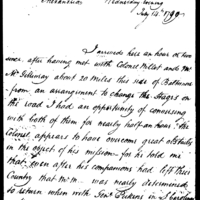 Alexandria Wednesday Evening
July 14th 1790
I arrived here an hour or two
since, after having met with Colonel Willet and Mr
McGillivray about 20 Miles this side of Baltimore
from an arrangement to change the Stages on
the road I had an opportunity of conversing
with both of them for nearly half an hour. The
Colonel appears to have overcome great obstacles
in the object of his mission for he told me
that even after his companions had left their
Country that M was nearly determined
to return when with Genl Pickens in S Carolina